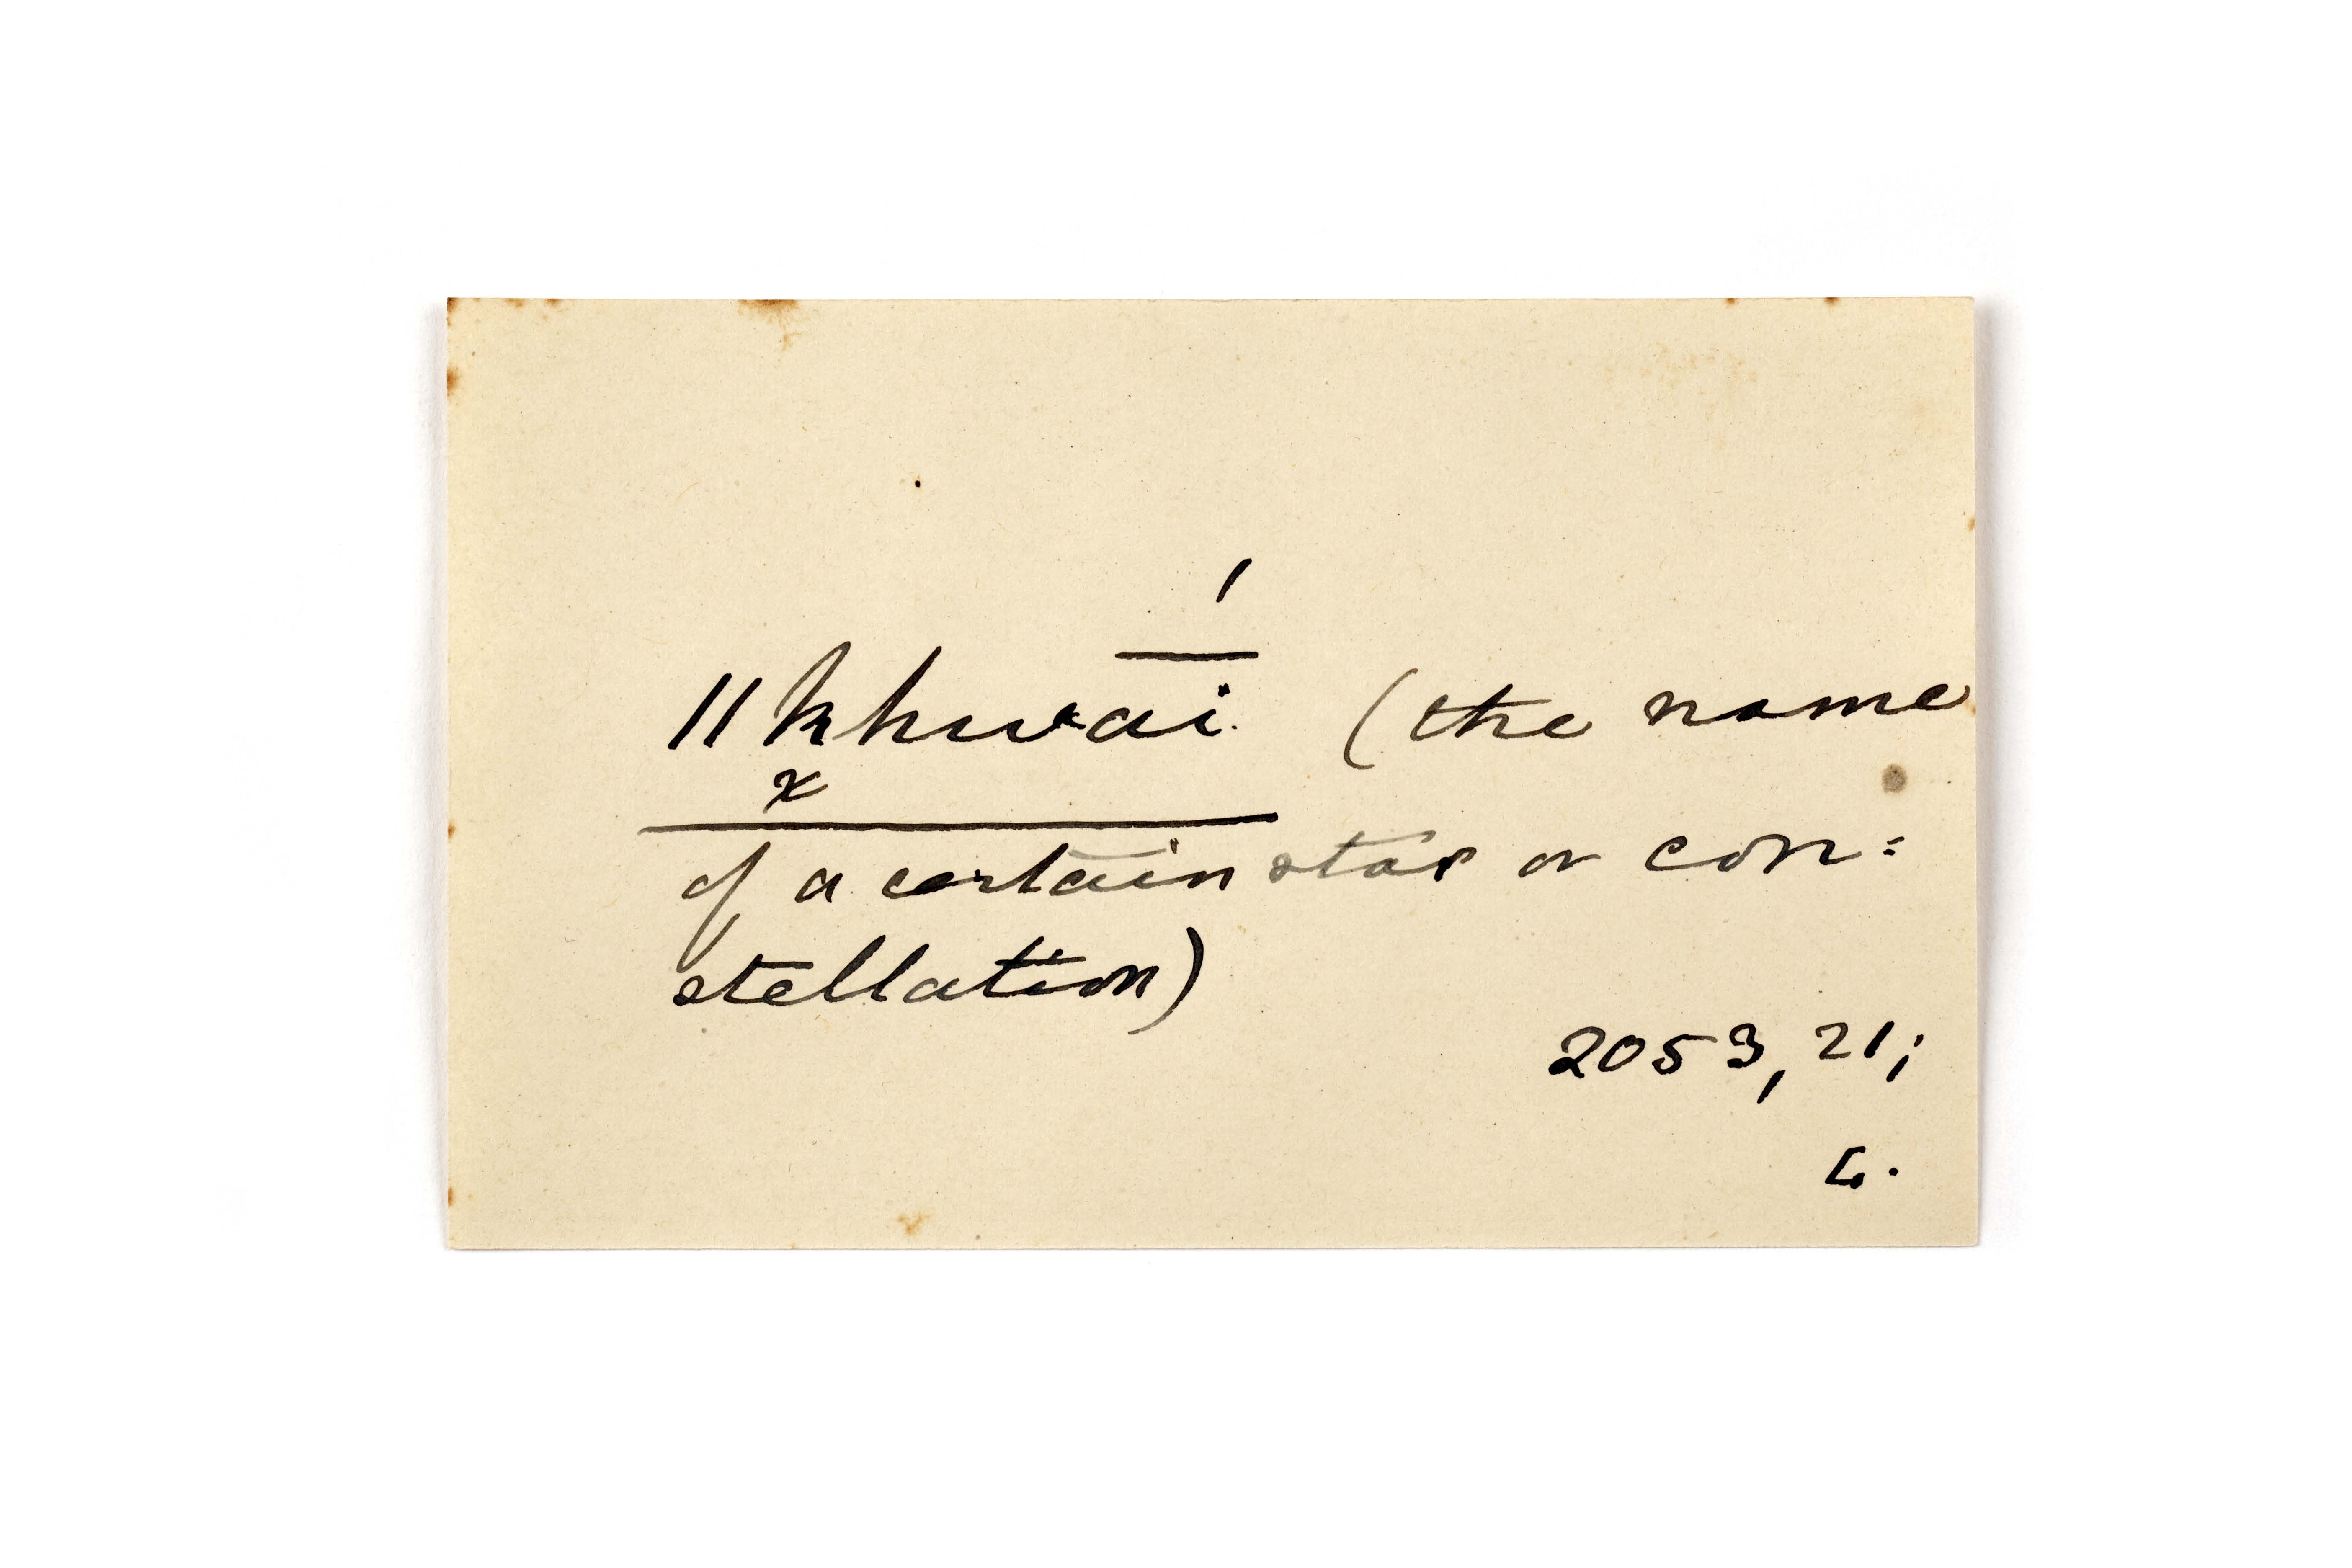 ǁkhwai (the name
x
of a certain star or con=
stellation)
2053, 21;
L.